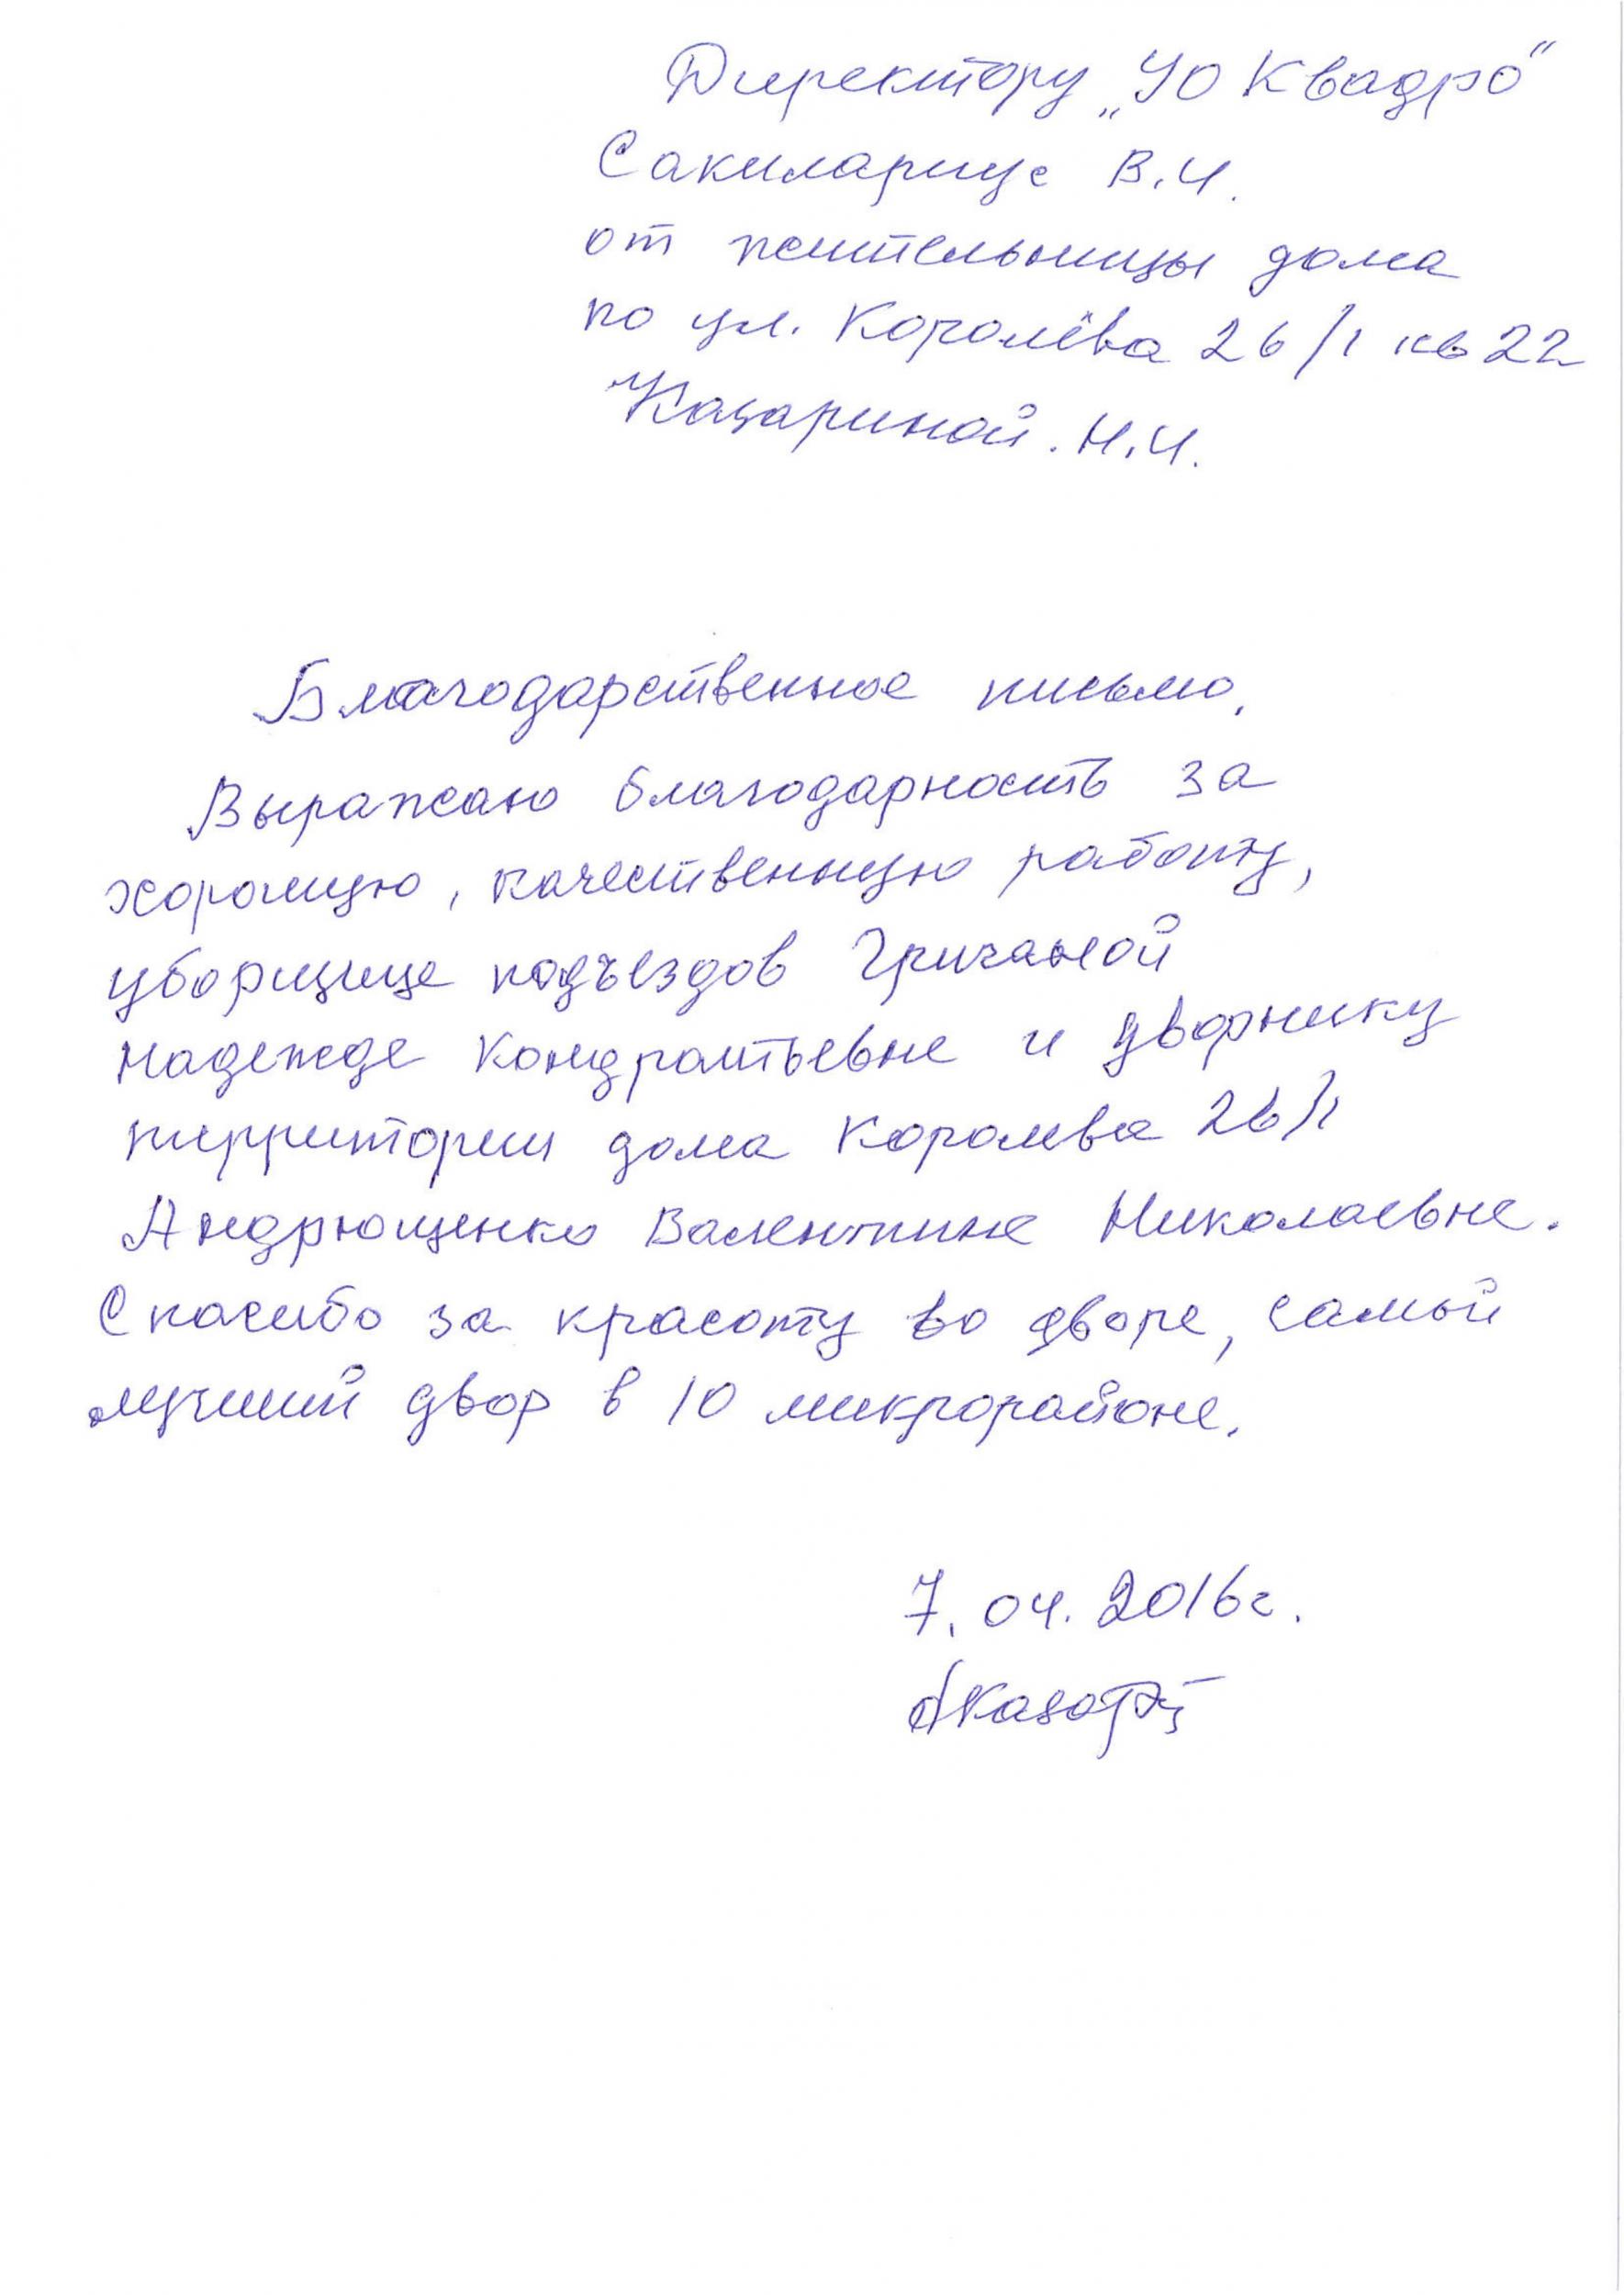 Директору „УО Квадро“
Сакиларице В.И.
от жительницы дома
по ул. Королёва 26/1 кв 22
Казариной. Н.И.
Благодарственное письмо.
Выражаю благодарность за
хорошую, качественную работу,
уборщице подъездов Гричаной
Надежде Кондратьевне и дворнику
территории дома Королева 26/1
Андрющенко Валентине Николаевне.
Спасибо за красоту во дворе, самый
лучший двор в 10 микрорайоне.
7.04.2016г.